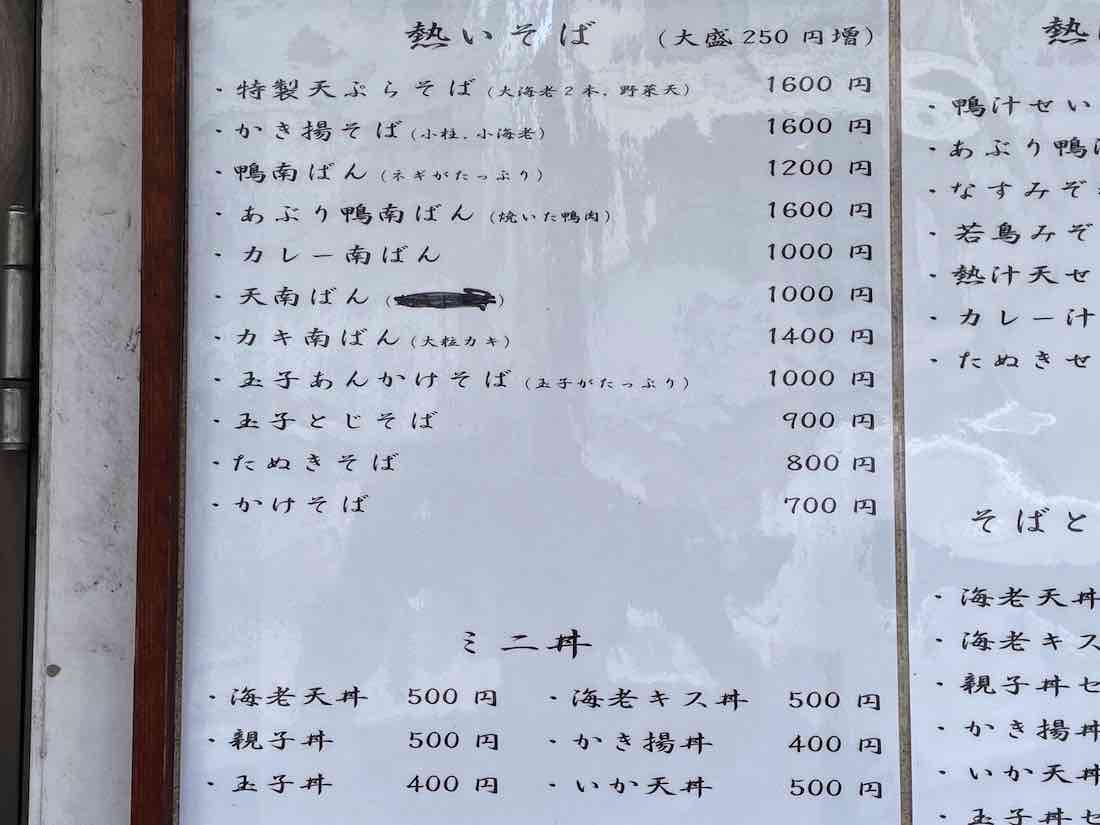 熱いそば (大盛250円増)
・特製天ぷらそば(大海老2本、野菜天) 1600円
・かき揚そば(小柱、小海老) 1600円
・鴨南ばん(ネギがたっぷり) 1200円
・あぶり鴨南ばん(焼いた鴨肉) 1600円
・カレー南ばん 1000円
・天南ばん( ) 1000円
・カキ南ばん(大粒カキ) 1400円
・玉子あんかけそば(玉子がたっぷり) 1000円
・玉子とじそば 900円
・たぬきそば 800円
・かけそば 700円
ミニ丼
・海老天丼 500円 ・海老キス丼 500円
・親子丼 500円 ・かき揚丼 400円
・玉子丼 400円 ・いか天丼 500円
熱
・鴨汁せい
・あぶり鴨
・なすみぞ
・若鳥みぞ
・熱汁天せ
・カレー汁
・たぬきせ
そばと
・海老天丼
・海老キス
・親子丼セ
・かき揚丼
・いか天丼
・玉子丼セ